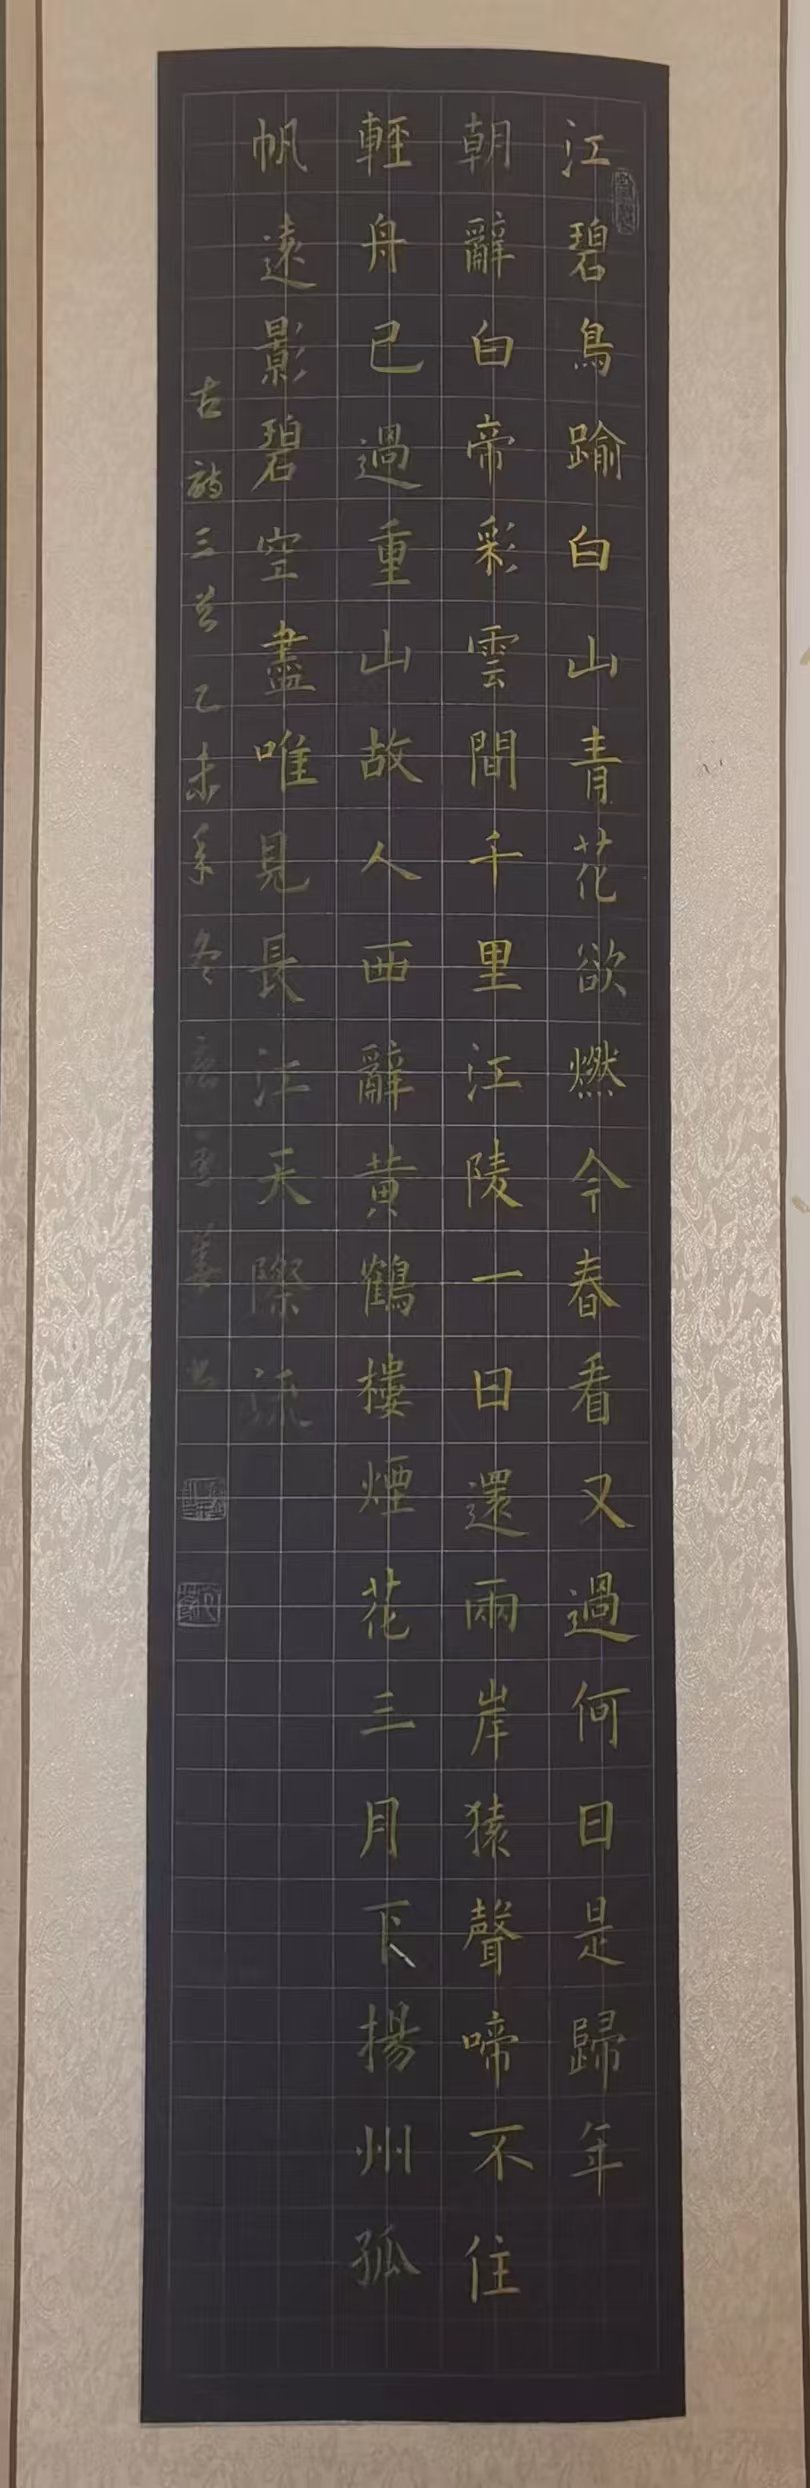 江碧鳥踰白山青花欲燃今春看又過何日是歸年
朝辭白帝彩雲間千里江陵一日還兩岸猿聲啼不住
輕舟已過重山故人西辭黃鶴樓煙花三月下揚州孤
帆遠影碧空盡唯見長江天際流
古詩三首乙未年冬